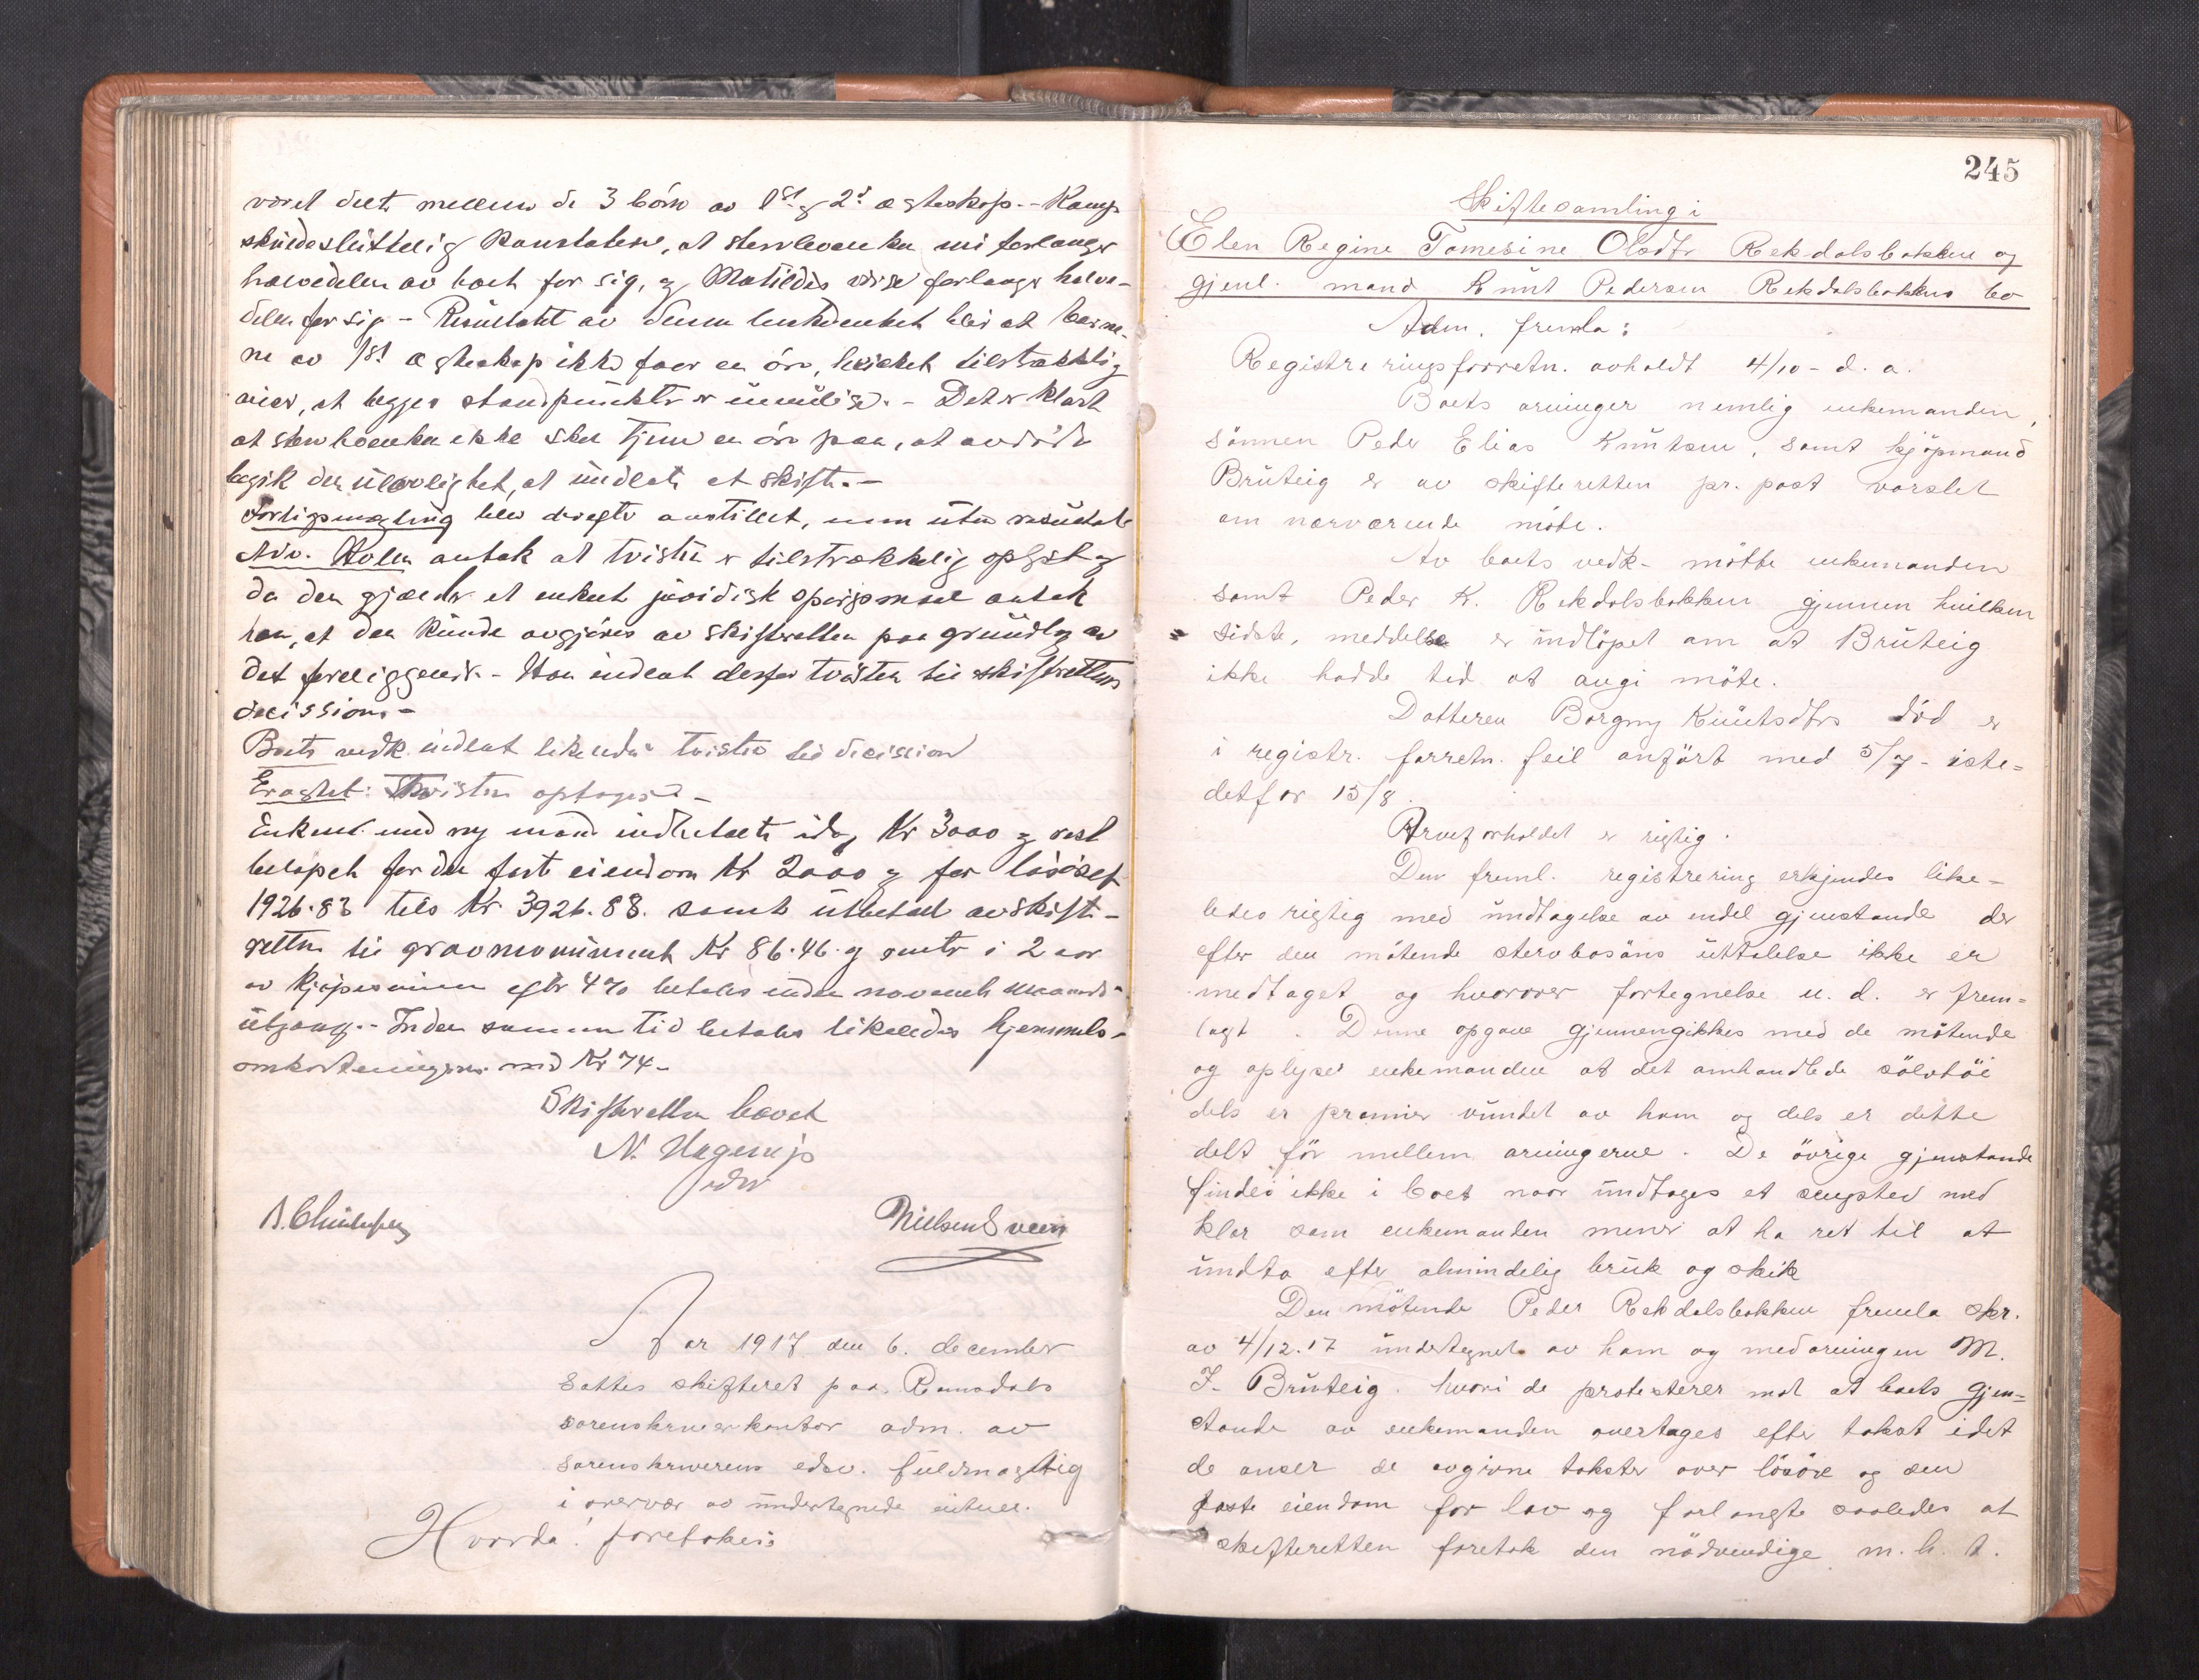 været delt mellem de 3 børn av 1st og 2d egteskap. - Kamp
skuldeslüttelig konstatere, at stervboenken vil forlange
halvedelen av boet for sig, og Matildes verge forlanger halve-
delen for sig - Resultatet av denne blir at barne-
ne av 1st egteskap ikke faar en øre, hvilket tilstrækkelig
viser, at begges standpunkter er umulige. - Det er klart
at stervboenken ikke skal tjene en øre paa, at avdøde
begik den ulovlighet, at undlate at skifte. -
Forligsmægling blev derefter anstillet, men uten resultat
Adv. Holm antok at tvisten er tilstrækkelig oplyst og
da den gjælder et enkelt juridisk spørgsmaal antok
han, at den kunde avgjøres av skifteretten paa grundlag av
det foreliggende. - Han indlot derfor tvisten til skifterettens
decission. -
Boets vedk. indlot likeledes tvisten til decision
Eragtet: Tvisten optages. -
Enken med ny mand indbetalte idag Kr 3000 og rest
beløpet for den fast eiendom Kr 2000 og for løsøret
1926.83 tils Kr. 3926.83. samt utbetalt av skifte-
retten til gravmonument Kr 86.46. og renter i 2 aar
av kjøpesummen efter 4% betales inden november maaneds
utgang. - Inden samme tid betales likeledes hjemmels-
omkostningerne med Kr 74 -
Skifteretten hævet
N. Hagerup
edsv
Nielsen Sveen
Aar 1917 den 6. december
sattes skifteret paa Romsdals
sorenskriverkontor adm. av
sorenskriverens edsv. fuldmægtig
i overvær av undertegnede vitner.
Hvorda! foretokes:
245
Skiftesamling i
Elen Regine Tomesine Olsdtr Rekdalsbakken og
gjenl. mand Knut Pedersen Rekdalsbakkens bo
Adm. fremla:
Registreringsforretn. avholdt 4/10 - d. a.
Boets arvinger nemlig enkemanden,
sönnen Peder Elias Knutsen, samt kjöpmand
Bruteig er av skifteretten pr. post varslet
om nærværende möte.
Av boets vedk. mötte enkemanden
samt Peder K. Rekdalsbakken gjennem hvilken
sidste, meddelse er indlöpet om at Bruteig
ikke hadde tid at angi möte.
Datteren Borgny Knutsdtrs död er
i registr. forretn. feil anfört med 5/7 - iste=
detfor 15/8.
Arveforholdet er rigtig.
Den freml. registrering erkjendes like-
ledes rigtig med undtagelse av endel gjenstande der
efter den mötende stervbosöns uttalelse ikke er
medtaget og hvorover fortegnelse u. d. er frem=
lagt. Denne opgave gjennengikkes med de mötende
og oplyser enkemanden at det omhandlede sölvtöi
dels er præmier vundet av ham og dels er dette
delt för mellem arvingerne. De övrige gjenstande
findes ikke i boet naar undtages et sengsted med
klær som enkemanden mener at ha ret til at
undta efter almindelig bruk og skik
Den mötende Peder Rekdalsbakken fremla skr.
av 4/12.17 undertegnet av ham og medarvingen M.
J. Bruteig. hvori de protesterer mot at boets gjen=
stande av enkemanden overtages efter takst idet
de anser de avgivne takster over lösöre og den
faste eiendom for lav og forlangte saaledes at
skifteretten foretok den nödvendige m. h. t.